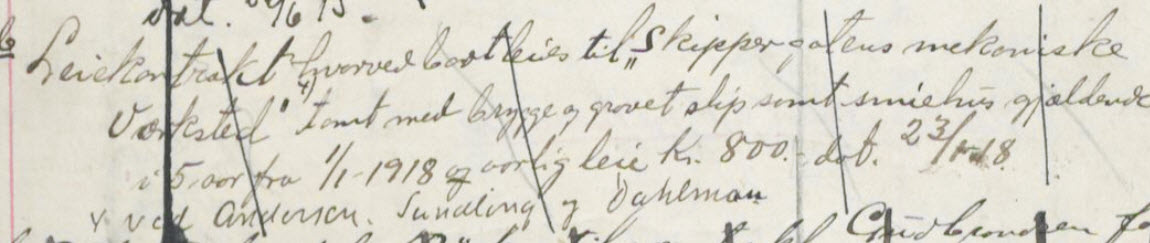 dat. 9/6 13.
Leiekontrakt hvorved bortleies til "Skippergatens mekaniske
Værksted" Tomt med brygge og grovet slip samt smiehus gjældende
i 5 aar fra 1/1-1918 og aarlig leie Kr. 800.- dat. 23/ 18
x ved Andersen. Sundling og Dahlman
Gudbrandsen